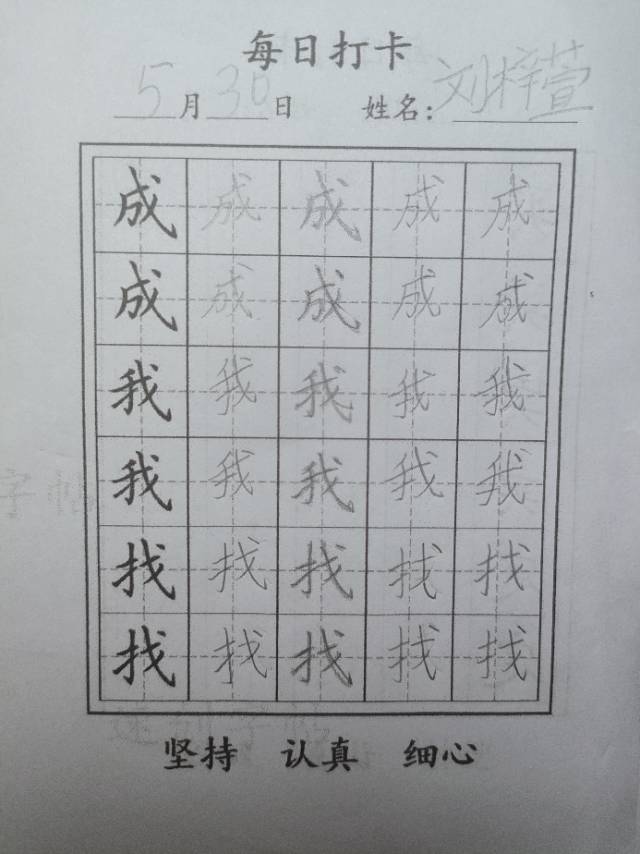 每日打卡
5月30日 姓名：刘梓萱
成成成成成
成成成成成
我我我我我
我我我我我
找找找找找
找找找找找
坚持 认真 细心